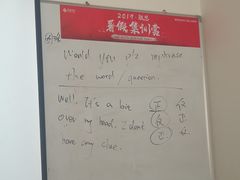 2019·
暑假集训营
Would you p'z rephrase
the word / question.
Well. It's a bit 正
over my head. I don't
have any clue.